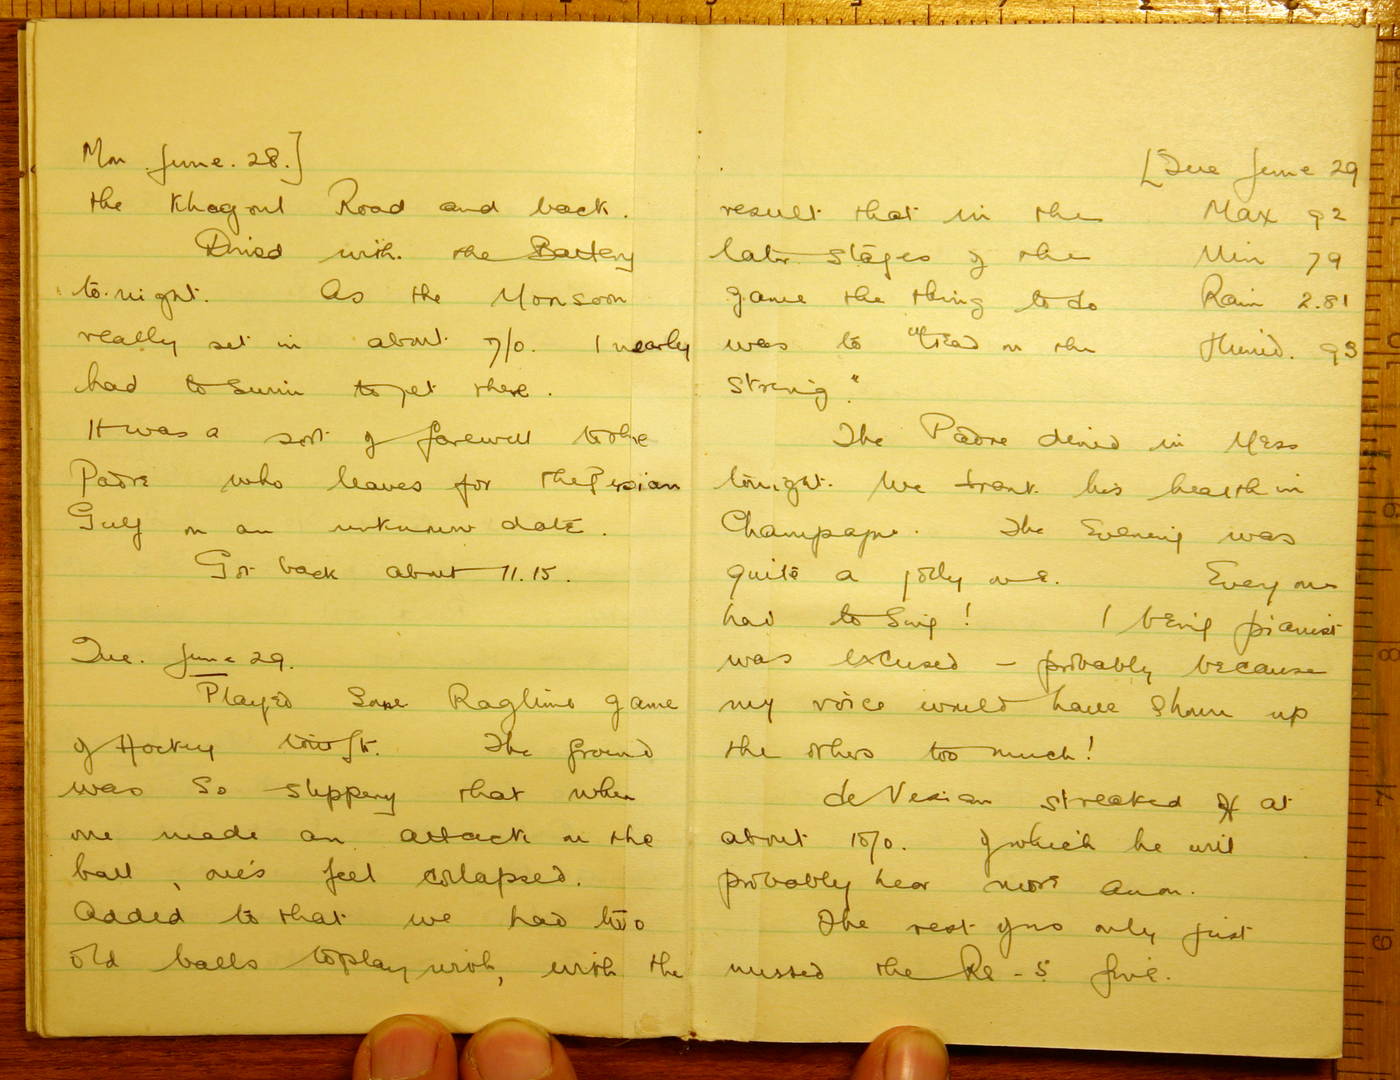 Mon June. 28.]
the Khagoul Road and back.
Dined with the Battery
to-night. As the Monsoon
really set in about 7/0. I nearly
had to swim to get there.
It was a sort of farewell to the
Padre who leaves for the Persian
Gulf on an unknown date.
Got back about 11.15.
Tue. June 29.
Played some Ragtime game
of Hockey The ground
was so slippery that when
one made an attack on the
ball, one's feet collapsed.
Added to that we had two
old balls to play with, with the
[Tue June 29
result that in the Max 92
later stages of the Min 79
game the thing to do Rain 2.81
was to "tread on the Humid. 93
string"
The Padre dined in Mess
tonight. We drank his health in
Champagne. The Evening was
quite a jolly one. Every one
had to sing! I being pianist
was excused - probably because
my voice would have shown up
the others too much!
streaked off at
about 10/0. of which he will
probably hear more anon.
The rest of us only just
missed the Re - 5 fine.